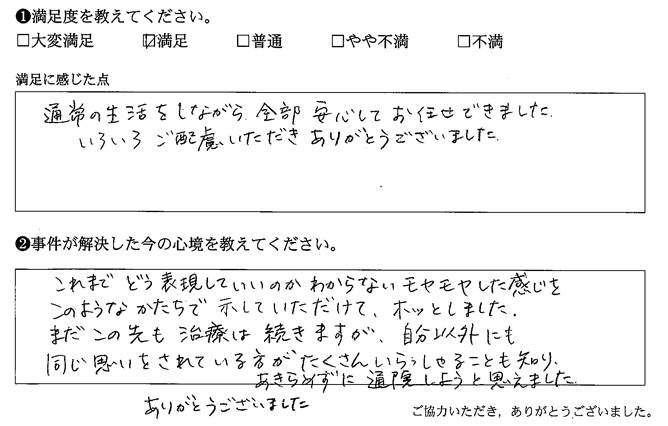 ❶満足度を教えてください。
□大変満足 ☑満足 □普通 □やや不満 □不満
満足に感じた点
通常の生活をしながら、全部 安心して お任せできました。
いろいろ ご配慮いただき ありがとうございました。
❷事件が解決した今の心境を教えてください。
これまで どう表現していいのか わからない モヤモヤした感じを
このような かたちで 示していただけて、ホッとしました。
まだ この先も 治療は 続きますが、自分以外にも
同じ思いをされている方が たくさん いらっしゃることも知り、
あきらめずに 通院しようと思えました。
ありがとうございました
ご協力いただき，ありがとうございました。